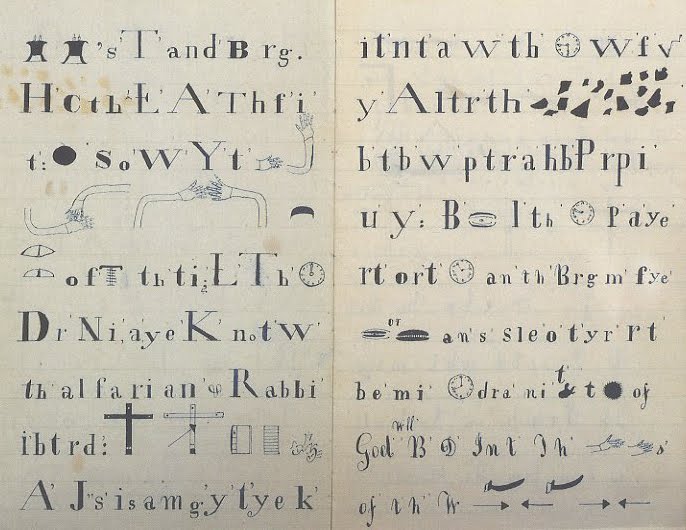 's' T' and B rg.
H' c' t h' E' A' T h' f i'
t: s' o' W' Y' t'
o f T t h' t i; L' T' h'
D' r' N i, a y e' K' n o t' w'
th' a l' f a r i' a n' R a b b i'
i b t r d:
A' J's' i s a m g' y' t' y e k'
i t' n' t' a' w' t h' w' f'
y' A l t r' t h'
b' t b' w' p t r' a' h b' P r p i'
u y: B' l' t h' P' a y e'
r t' o r t' a n' t h' B r g' m' f y e'
or a n' s' s l e' o' t y r' r t'
b e' m i' d r a' n i' t' t' o f
God will B' D' I n' t' T h' s'
o f' t h' W'